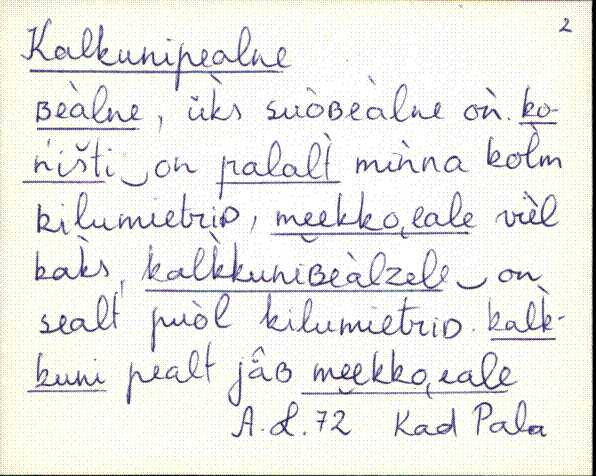 2
Kalkunipealne
ʙeàlne, ùks suòʙeàlne oǹ. ko-
ńišti‿on palaĺt mińna kolm
kilumietriᴅ, meekko,eale vièl
kaks, kalkkuniʙeàlzele‿on
sealt puòl kilumietriᴅ. kalk-
kuni pealt jâʙ meekko,eale
A.L. 72 Kad Pala